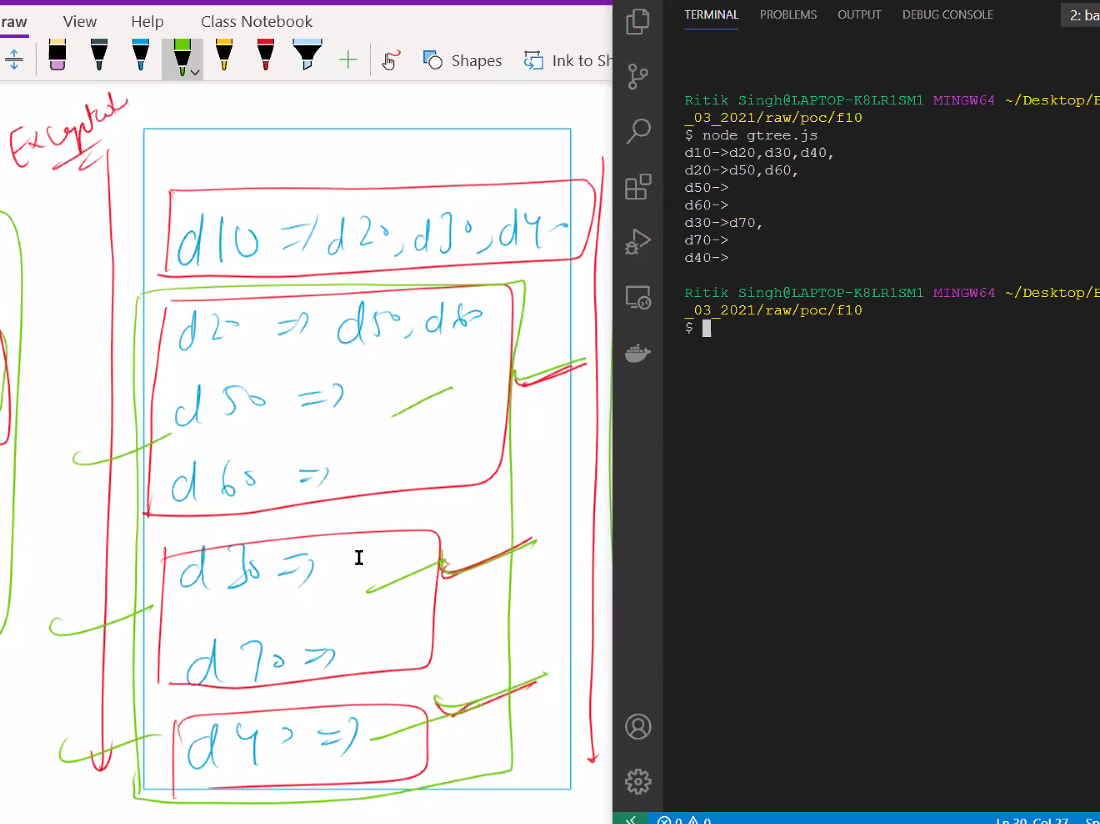 raw View Help Class Notebook
Shapes Ink to Sh
d10 => d20, d30, d40
d20 => d50, d60
d50 =>
d60 =>
d30 =>
d70 =>
d40 =>
TERMINAL PROBLEMS OUTPUT DEBUG CONSOLE 2: ba
Ritik Singh@LAPTOP-K8LR1SM1 MINGW64 ~/Desktop/E
_03_2021/raw/poc/f10
$ node gtree.js
d10->d20,d30,d40,
d20->d50,d60,
d50->
d60->
d30->d70,
d70->
d40->
Ritik Singh@LAPTOP-K8LR1SM1 MINGW64 ~/Desktop/E
_03_2021/raw/poc/f10
$
0 0 Ln 30, Col 27 Sp